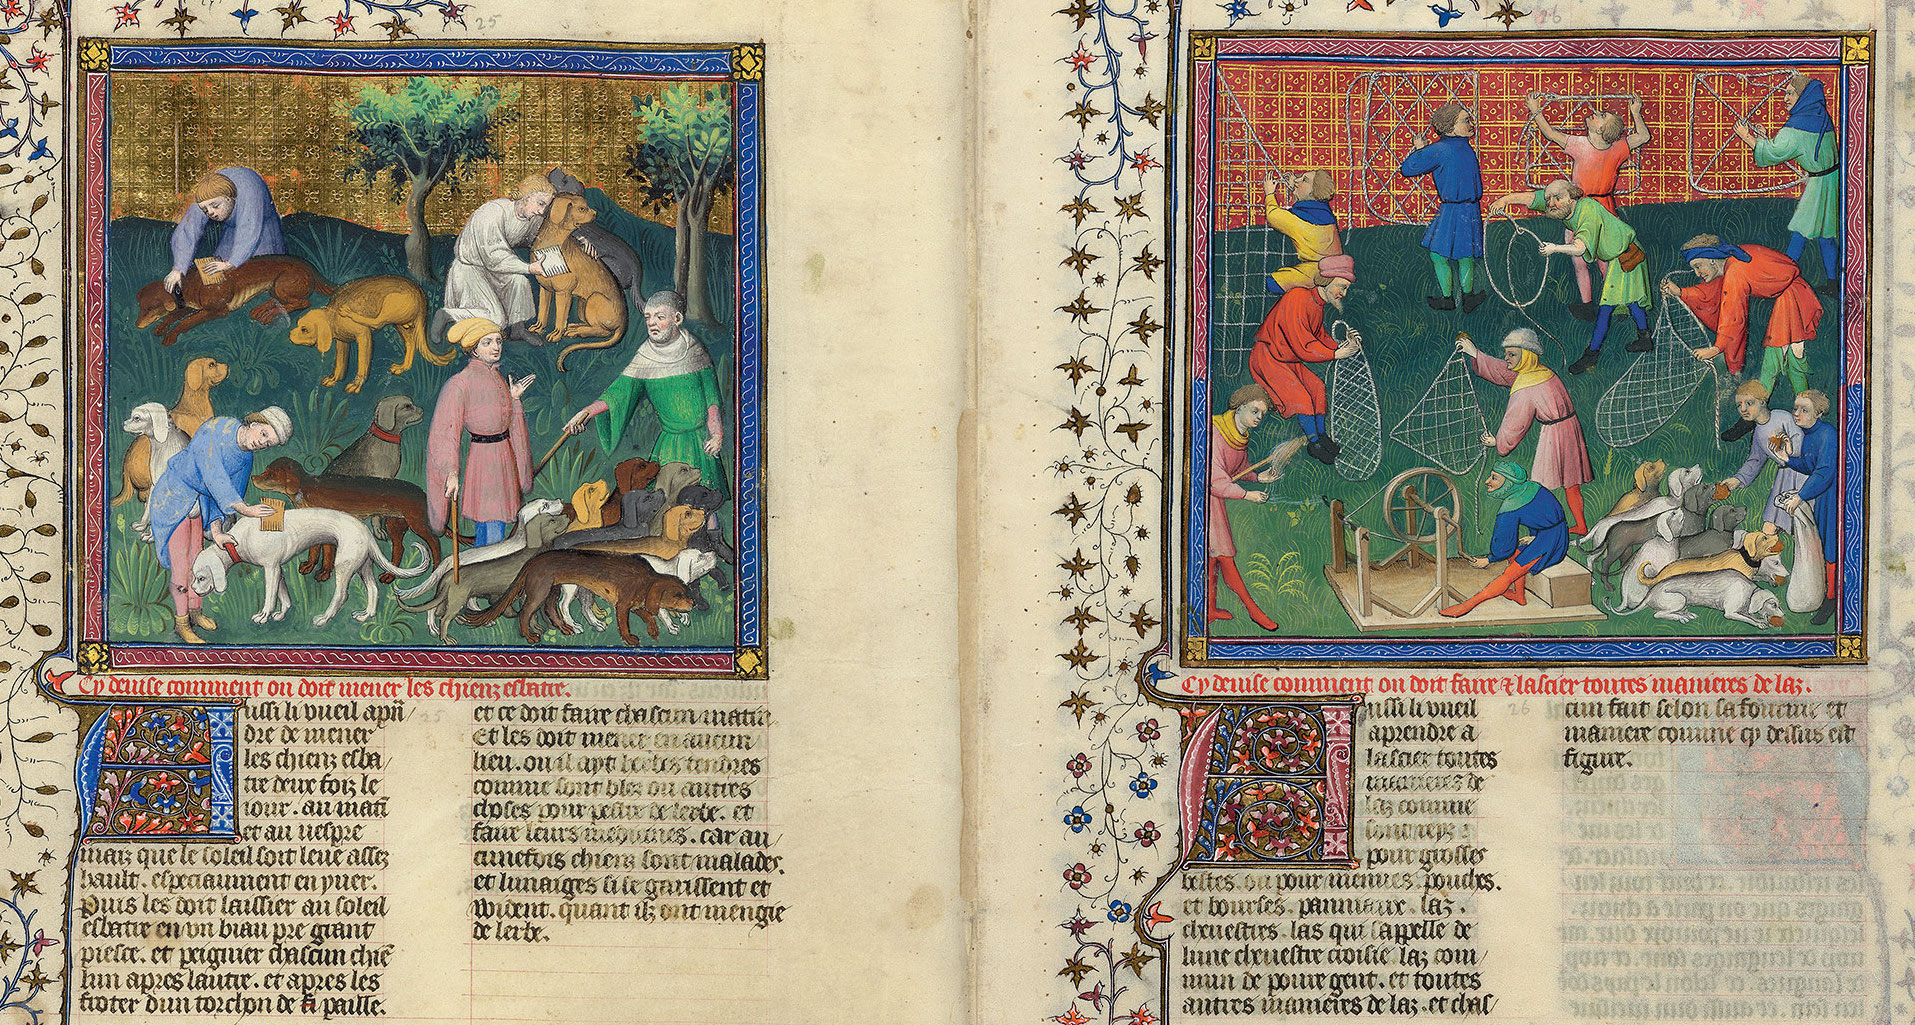 25
Cy deuise comment on doit mener les chienz esbatre.
Aussi li vueil apn
dre de mener
les chienz esba
tre deux foiz le
iour. au mati
et au vespre
maiz que le soleil soit leue assez
hault. especiaument en yuer.
Puis les doit laissier au soleil
esbatre en vn biau pre grant
piesce. et peignier chascun chie
lun apres lautre. et apres les
froter dun torchon de paille.
et ce doit faire chascun matin
Et les doit mener en aucun
lieu. ou il ayt herbes tendres
comme sont blez ou autres
choses pour pestre de lerbe. et
faire leurs medicines. car au
cunefois chienz sont malades.
et lunaiges si se garissent et
wident. quant ilz ont mengie
de lerbe.
26
Cy deuise comment on doit faire & lascier toutes manieres de laz.
Aussi li vueil
aprendre a
lascier toutes
manieres de
laz comme
pour grosses
bestes. ou pour menues. pouches.
et bourses. panniaux. laz.
cheuestres. las qui sappelle de
lune cheuestre croisie. laz com
mun de poure gent. et toutes
autres manieres de laz. et chas
cun fait selon sa fourme et
maniere comme cy dessus est
figure.